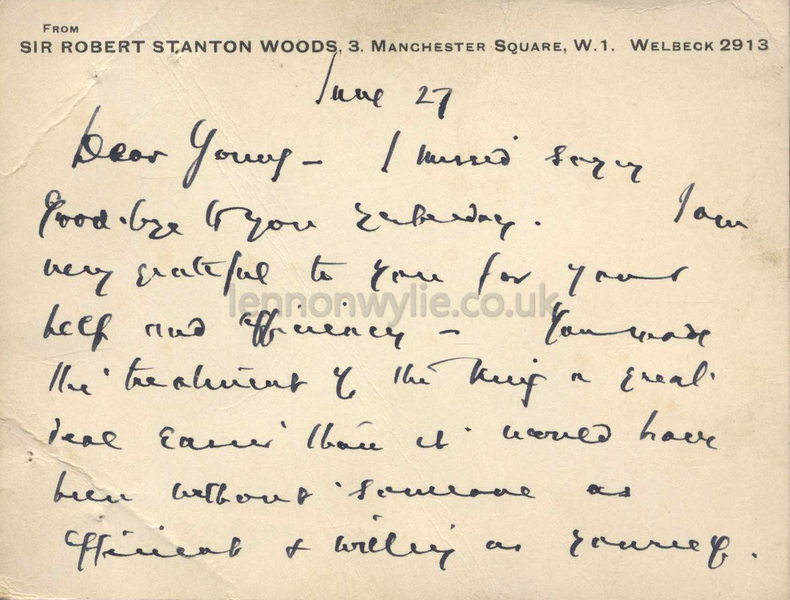 FROM
SIR ROBERT STANTON WOODS, 3. MANCHESTER SQUARE, W.1. WELBECK 2913
June 27
Dear Young - I missed saying
Good-bye to you yesterday. I am
very grateful to you for your
lennonwylie.co.uk
help and efficiency - You made
the treatment of the King a great
deal easier than it would have
been without someone as
efficient & willing as yourself.